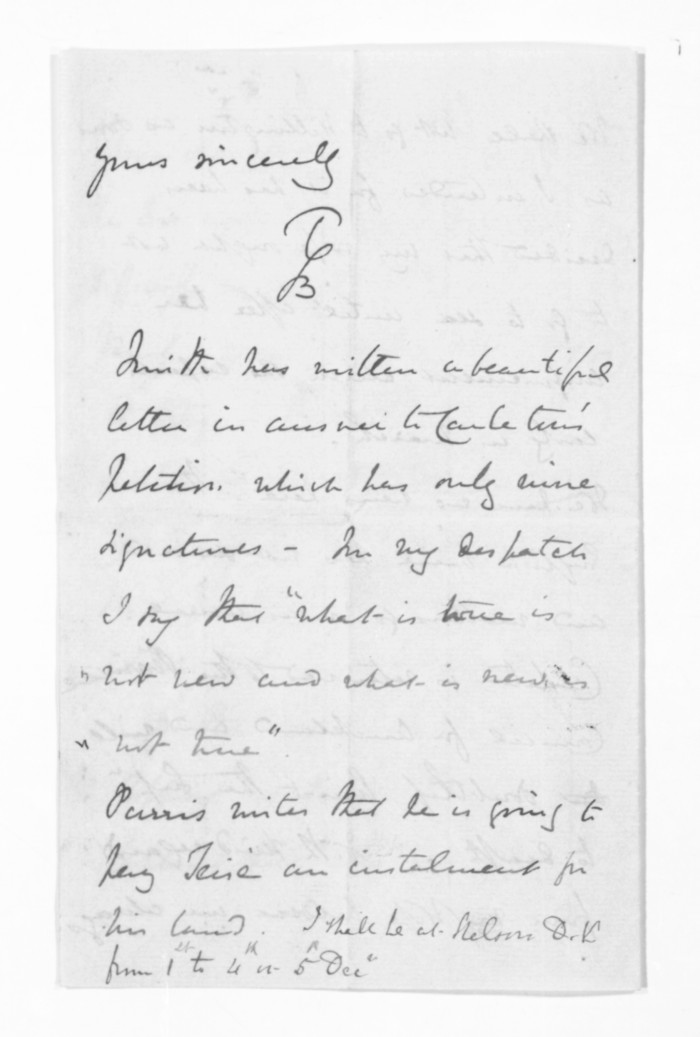 Yours sincerely
TGB
Smith has written a beautiful
letter in answer to Carleton's
petition. which has only nine
signatures - In my despatch
I say that "what is true is
"not new and what is new is
" not true".
Parris writes that he is going to
pay Teira an instalment for
his land. I shall be at Nelson D.V.
from 1st to 4th or 5th Decr